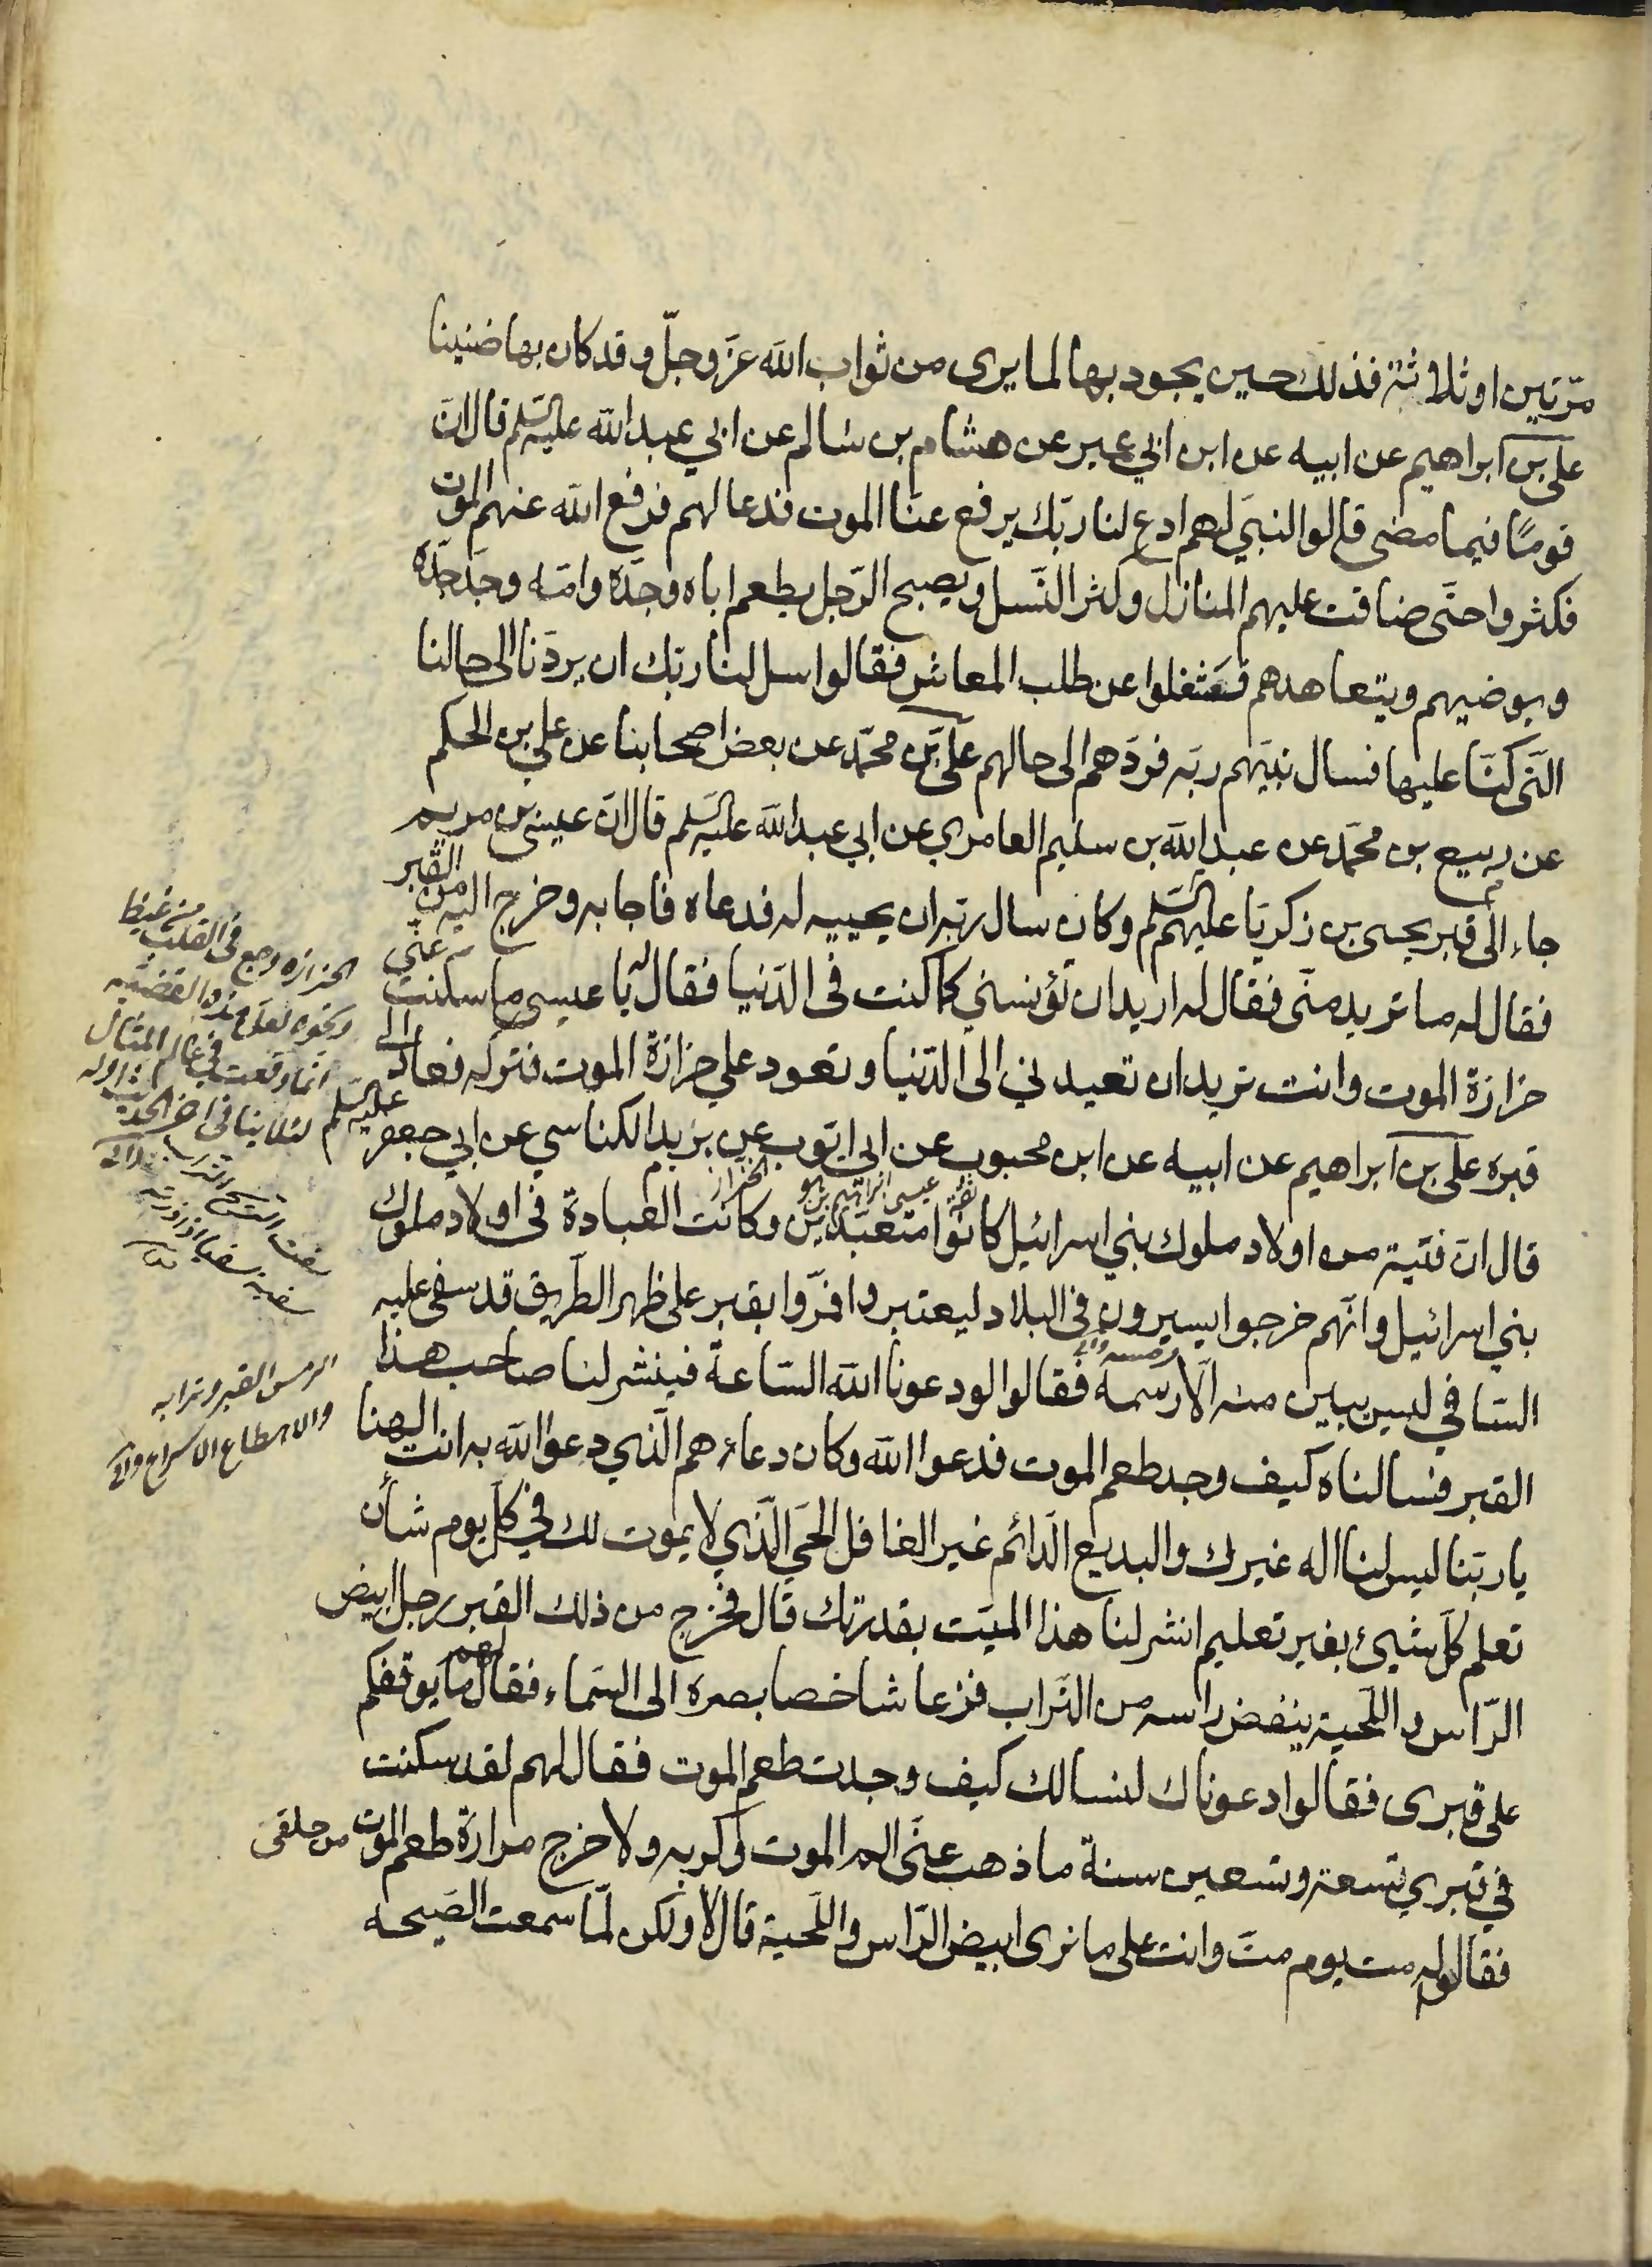 مرّتين او ثلاثة فذلك حين يجود بها لما يرى من ثواب الله عزّ وجلّ و قد كان بها ضنينا
علي بن ابراهيم عن ابيه عن ابن ابي عمير عن هشام بن سالم عن ابي عبد الله عليه السلم قال انّ
قومًا فيما مضى قالوا لنبيّ لهم ادع لنا ربّك يرفع عنّا الموت فدعا لهم فرفع الله عنهم الموت
فكثروا حتّى ضاقت عليهم المنازل وكثر النّسل و يصبح الرّجل يطعم اباه وجدّه وامّه وجدّ جدّه
و يوضيهم ويتعاهدهم فشغلوا عن طلب المعاش فقالوا سل لنا ربّك ان يردّنا الى حالنا
الّتى كنّا عليها فسال نبيّهم ربّه فردّهم الى حالهم عليّ بن محمّد عن بعض اصحابنا عن علي بن الحكم
عن ربيع بن محمّد عن عبد الله بن سليم العامري عن ابي عبد الله عليه السّلم قال انّ عيسى بن مريم
جاء الى قبر يحيى بن زكريّا عليهم السّلم وكان سال ربّه ان يحييه له فدعاه فاجابه و خرج اليه من القبر
فقال له ما تريد منّى فقال له اريد ان تؤنسني كما كنت فى الدّنيا فقال له يا عيسى ما سكنت عنّى
حزازة الموت وانت تريد ان تعيدني الى الدّنيا و تعود علي حزازة الموت فتركه فعاد الى
قبره علي بن ابراهيم عن ابيه عن ابن محبوب عن ابي ايّوب عن يزيد الكناسي عن ابي جعفر عليه السّلم
ثقة عيسى ابراهيم بن هو الخزاز
قال انّ فتية من اولاد ملوك بني اسرائيل كانوا متعبّدين وكانت العبادة في اولاد ملوك
بني اسرائيل و انّهم خرجوا يسيرون في البلاد ليعتبروا فمرّوا بقبر على ظهر الطّريق قد سفى عليه
السّافي ليس يبين منه الّا رسمه فقالوا لو دعونا الله السّاعة فينشر لنا صاحب هذا
القبر فسالناه كيف وجد طعم الموت فدعوا الله وكان دعاؤهم الّذي دعوا الله به انت الهنا
يا ربّنا ليس لنا اله غيرك والبديع الدّائم غير الغافل الحيّ الّذي لا يموت لك في كلّ يوم شأن
تعلم كلّ شيئ بغير تعليم انشر لنا هذا الميّت بقدرتك قال فخرج من ذلك القبر رجل ابيض
الرّاس و اللّحية ينفض راسه من التّراب فزعا شاخصا بصره الى السّماء فقال لهم ما يوقفكم
على قبرى فقالوا دعوناك لنسالك كيف وجدت طعم الموت فقال لهم لقد سكنت
في قبري تسعة وتسعين سنة ما ذهب عنّى الم الموت وكربه و لا خرج مرارة طعم الموت من حلقى
فقالوا له مت يوم متّ وانت على ما نرى ابيض الرّاس واللّحية قال لا ولكن لمّا سمعت الصّيحه
الحزازه وجع فى القلب من غيظ
ونحوه لعلّ هذه القضيّه
انّما وقعت في عالم المثال
لئلا ينافى اخر الحديث اوله
سفت الريح التراب
الرمس القبر و ترابه
والاهطاع الاسراع